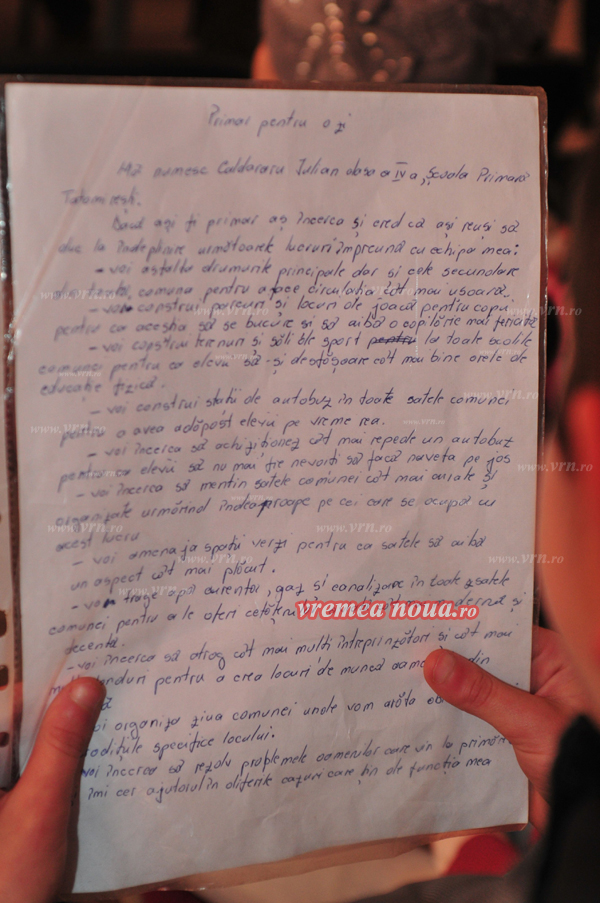 Primar pentru o zi
Mă numesc Caldararu Iulian clasa a IV a, Școala Primară
Tatomirești.
Dacă ași fi primar aș încerca și cred că ași reuși să
duc la îndeplinire următoarele lucruri împreună cu echipa mea:
- voi asfalta drumurile principale dar și cele secundare
comuna pentru a face circulația cît mai ușoară.
- voi construi parcuri și locuri de joacă pentru copii
pentru ca aceștia să se bucure și să aibă o copilărie mai fericită
- voi construi terenuri și săli de sport pentru la toate școlile
comunei pentru ca elevii să-și desfășoare cît mai bine orele de
educație fizică.
- voi construi stații de autobuz în toate satele comunei
pentru a avea adăpost elevii pe vreme rea.
- voi încerca să achiziționez cît mai repede un autobuz
pentru ca elevii să nu mai fie nevoiți să facă naveta pe jos
- voi încerca să mentin satele comunei cît mai curate și
organizate urmărind îndeaproape pe cei care se ocupă cu
acest lucru
- voi amenaja spații verzi pentru ca satele să aibă
un aspect cît mai plăcut.
- voi trage apă curentă, gaz și canalizare în toate satele
comunei pentru a le oferi modernă și
decentă.
- voi încerca să atrag cît mai mulți întreprinzători și cît mai
fonduri pentru a crea locuri de muncă din
organiza ziua comunei unde vom arăta
specifice locului.
voi încerca să rezolv problemele oamenilor care vin la
îmi cer ajutorul în diferite cazuri care țin de funcția mea
www.vrn.ro
vremea noua.ro